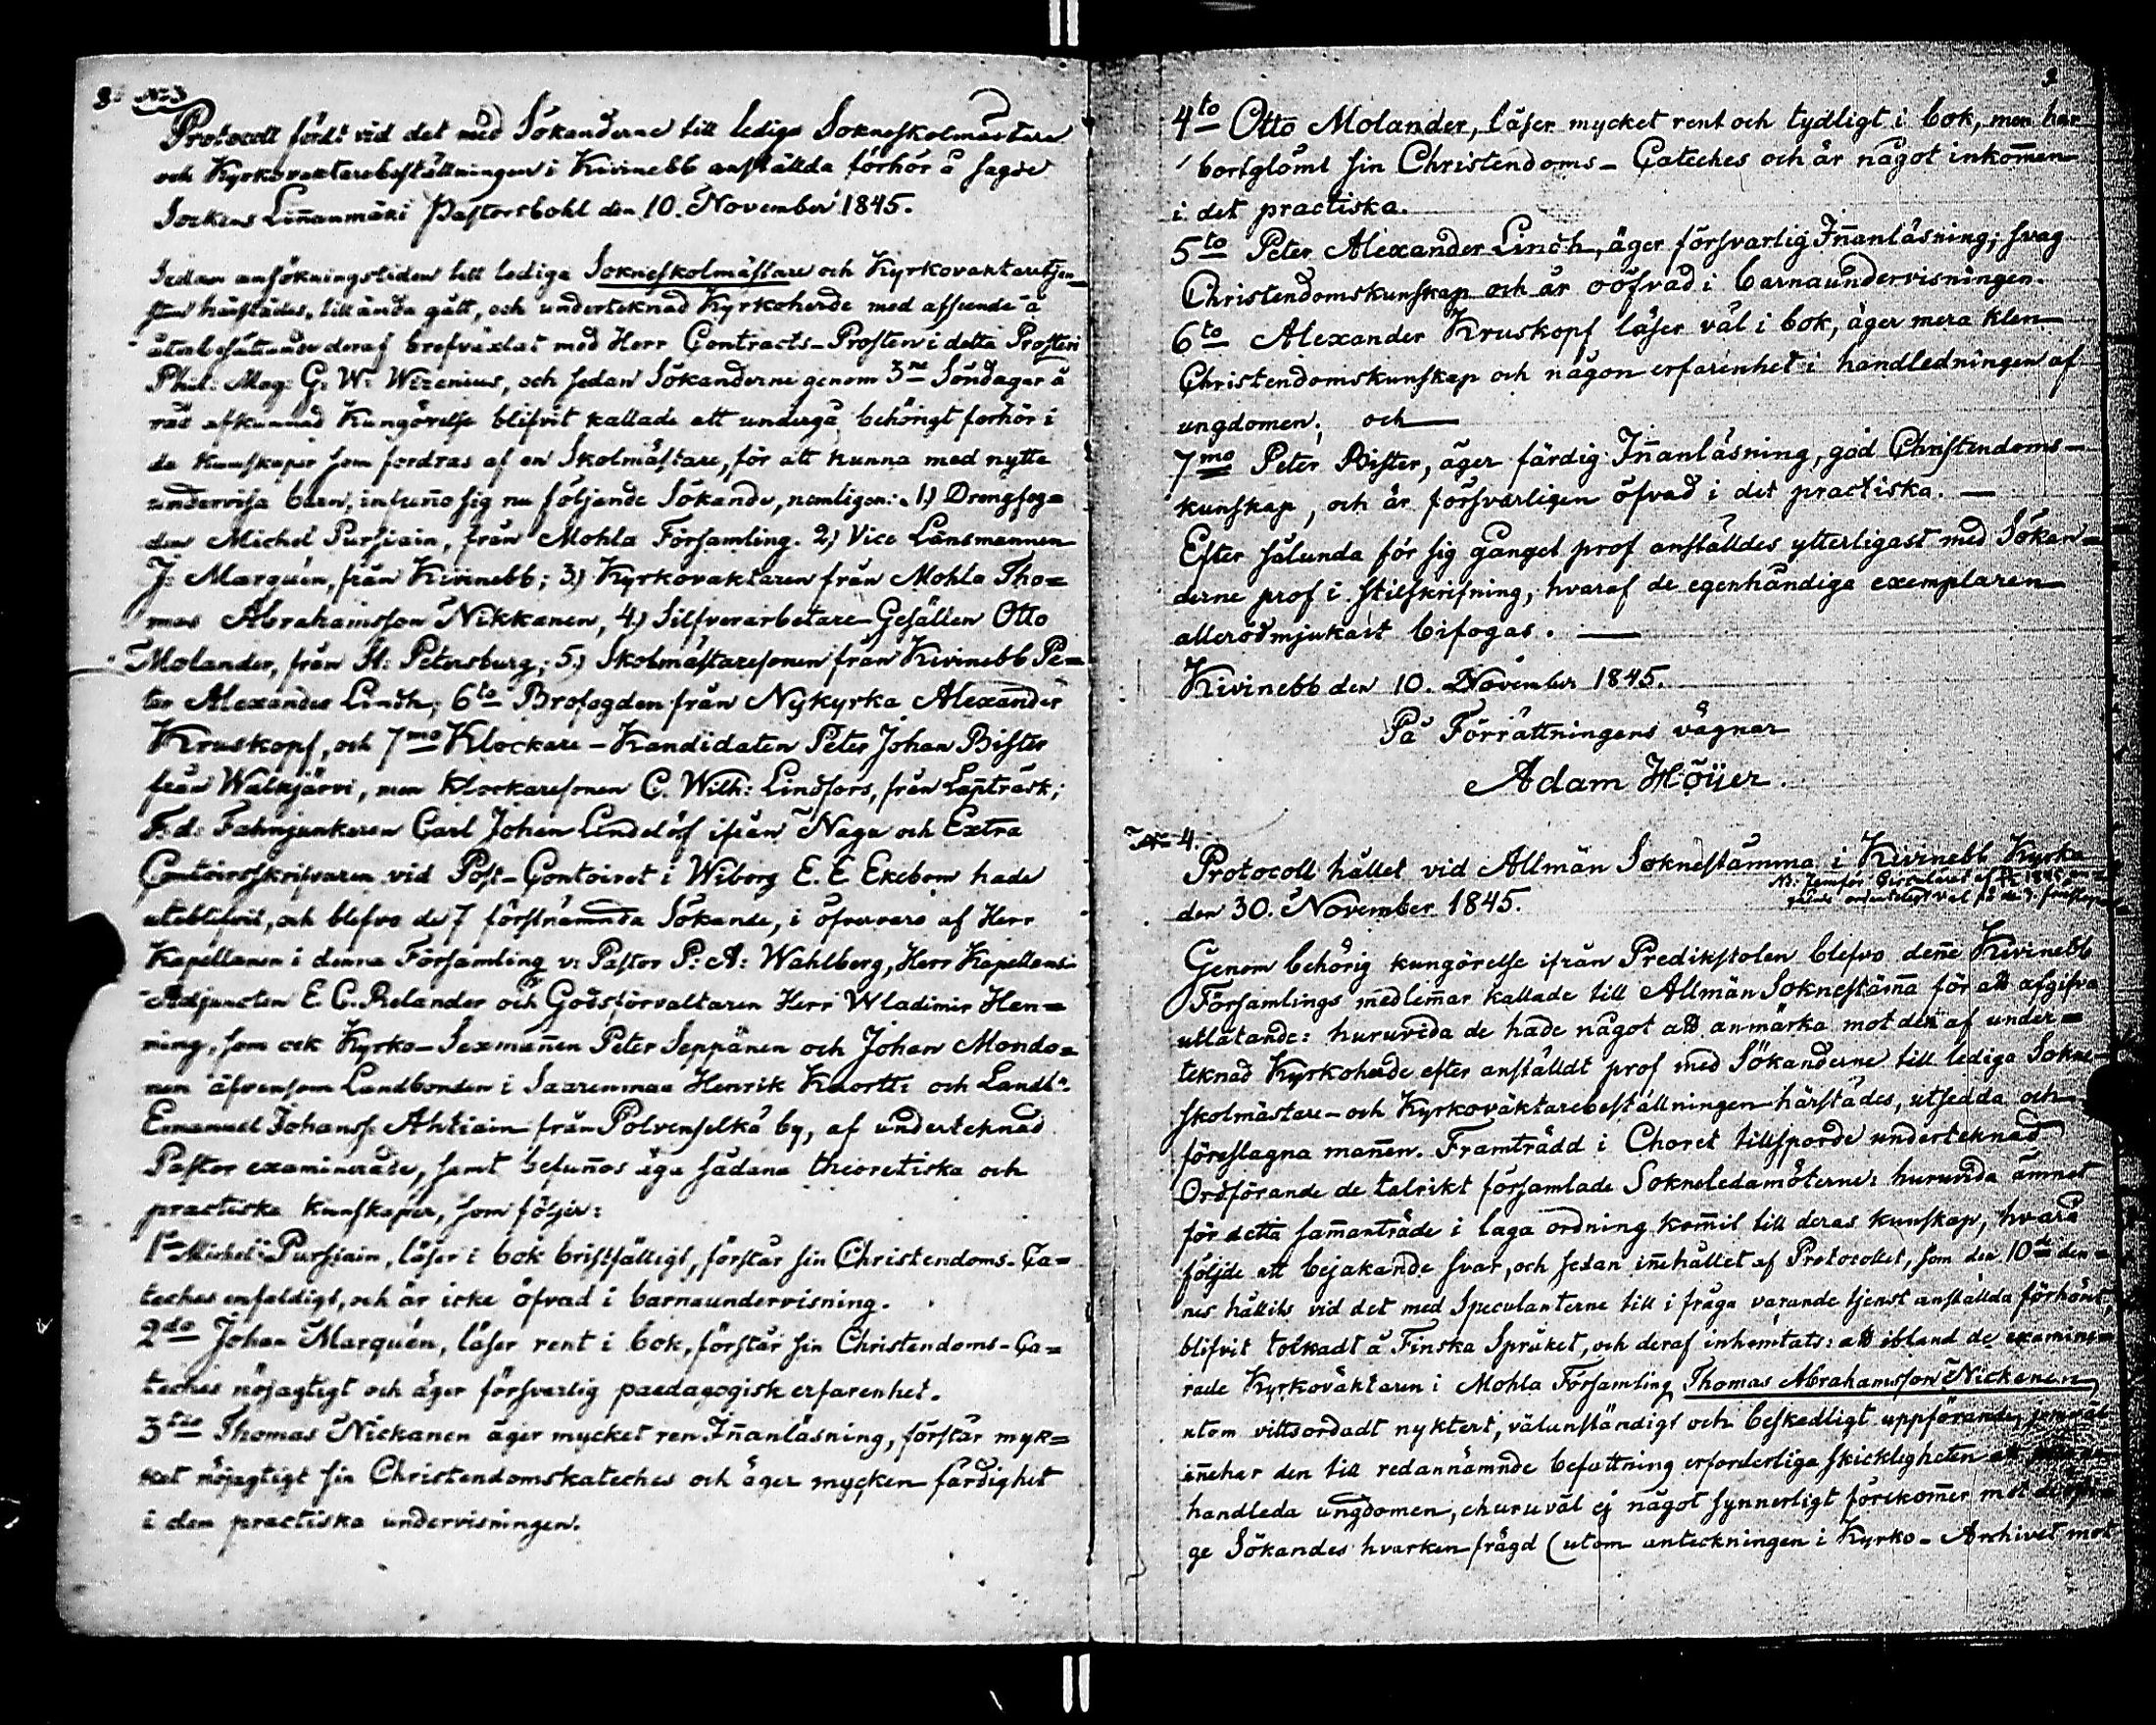 8. No 3
Protocoll fördt vid det med Sökanderne till lediga Sokneskolmästare
och Kyrkovaktarebeställningen i Kivinebb anställda förhör å sagde
Sockens Linnanmäki Pastorsbohl den 10. November 1845.
Sedan ansökningstiden till lediga Sokneskolmästare och Kyrkovaktaretjen-
sten härstädes, tilländagått, och underteknad Kyrkoherde med afseende å
återbesättande deraf brefväxlat med Herr Contracts-Prosten i detta Prosteri
Phil: Mag: G: W: Wirenius, och sedan Sökanderne genom 3ne Söndagar å
rad afkunnad Kungörelse blifvit kallade att undergå behörigt förhör i
de Kunskaper som fordras af en Skolmästare, för att kunna med nytta
undervisa barn, infunno sig nu följande Sökande, nemligen: 1,) Drengfog=
den Michel Pursiain, från Mohla Församling. 2,) Vice Länsmannen
J: Marquén, från Kivinebb; 3,) Kyrkovaktaren från Mohla Tho=
mas Abrahamsson Nikkanen, 4,) Silfverarbetare-Gesällen Otto
Molander, från St: Petersburg; 5,) Skolmästaresonen från Kivinebb Pe=
ter Alexander Lindh; 6to Brofogden från Nykyrka Alexander
Kruskopf, och 7mo Klockare-Kandidaten Peter Johan Bister
från Walkjärvi, men Klockaresonen C. Wilh: Lindfors, från Lapträsk;
F: d: Fahnjunkaren Carl Johan Lindelöf ifrån Naga och Extra
Contoirsskrifvaren vid Post-Contoiret i Wiborg E. E. Ekebom hade
uteblifvit, och blefvo de 7 förstnämnda Sökande, i öfvervaro af Herr
Kapellanen i denna Församling v: Pastor P: A: Wahlberg, Herr Kapellans-
Adjuncten E C. Relander och Godsförvaltaren Herr Wladimir Hen=
ning, som ock Kyrko-Sexmannen Peter Seppänen och Johan Mondo=
nen äfvensom Landbonden i Saarenmaa Henrik Kuortti och Landb:
Emanuel Johanss: Ahtiain från Polvenselkä by, af underteknad
Pastor examinerade, samt befunnos äga sådana theoretiska och
practiska kunskaper, som följer:
1o Michel Pursiain, läser i bok bristfälligt, förstår sin Christendoms-Ca=
teches enfaldigt, och är icke öfvad i barnaundervisning.
2do Johan Marquén, läser rent i bok, förstår sin Christendoms-Ca=
teches nöjagtigt och äger försvarlig paedagogisk erfarenhet.
3tio Thomas Nickanen äger mycket ren Innanläsning, förstår myk=
ket nöjagtigt sin Christendomskateches och äger mycken färdighet
i den practiska undervisningen.
4to Otto Molander, läser mycket rent och tydligt i bok, men har
bortglömt sin Christendoms-Cateches och är något inkommen
i det practiska.
5to Peter Alexander Lindh, äger försvarlig Innanläsning; svag
Christendomskunskap och är oöfvad i barnaundervisningen.
6to Alexander Kruskopf läser väl i bok, äger mera klen
Christendomskunskap och någon erfarenhet i handledningen af
ungdomen; och
7mo Peter Bister, äger färdig Innanläsning, god Christendoms-
kunskap, och är försvarligen öfvad i det practiska.
Efter sålunda för sig gånget prof anställdes ytterligast med Sökan=
derne prof i stilskrifning, hvaraf de egenhändiga exemplaren
allerödmjukast bifogas.
Kivinebb den 10. November 1845.
På Förrättningens vägnar
Adam Höijer.
No 4.
Protocoll hållet vid Allmän Soknestämma i Kivinebb Kyrka
den 30. November 1845.
Genom behörig kungörelse ifrån Predikstolen blefvo denne Kivinebb
Församlings medlemmar kallade till Allmän Soknestämma för att afgifva
utlåtande: huruvida de hade något att anmärka mot den af under=
teknad Kyrkoherde efter anställdt prof med Sökanderne till lediga Sokne-
skolmästare- och Kyrkoväktarebeställningen härstädes, utsedda och
föreslagna mannen. Framträdd i Choret tillsporde underteknad
Ordförande de talrikt församlade Sokneledamöterne: huruvida ämnet
för detta sammanträde i laga ordning kommit till deras kunskap, hvarå
följde ett bejakande svar, och sedan innehållet af Protocollet, som den 10de den=
nes hållits vid det med Speculanterne till i fråga varande tjenst anställda förhöret,
blifvit tolkadt å Finska Språket, och deraf inhemtats: att ibland de examine=
rade Kyrkoväktaren i Mohla Församling Thomas Abrahamsson Nickanen
utom vittsordadt nyktert, välanständigt och beskedligt uppförande,
innehar den till redannämnde befattning erforderliga skickligheten
handleda ungdomen, ehuruväl ej något synnerligt förekommer mot
ge Sökandes hvarken frägd (utom anteckningen i Kyrko-Archivet mot